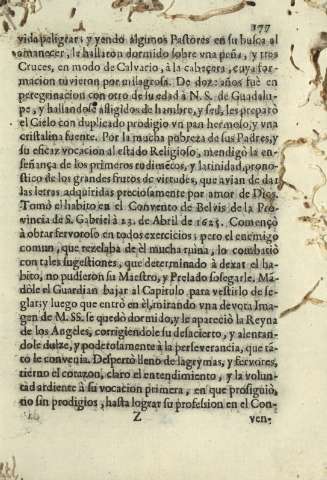 177
vida peligrar; y yendo algunos Pastores en su busca al
amanecer, le hallaron dormido sobre vna peña, y tres
Cruces, en modo de Calvario, à la cabeçera, cuya for-
macion tuvieron por milagrosa. De doze años fuè en
peregrinacion con otro de su edad à N. S. de Guadalu-
pe, y hallandose afligidos de hambre, y sed, les preparò
el Cielo con duplicado prodigio vn pan hermoso, y vna
cristalina fuente. Por la mucha pobreza de sus Padres, y
su eficaz vocacion al estado Religioso, mendigò la en-
señança de los primeros rudimetos, y latinidad, prono-
stico de los grandes frutos de virtudes, que avian de dar
las letras adquiridas preciosamente por amor de Dios.
Tomò el habito en el Convento de Belvis de la Pro-
vincia de S. Gabriel à 23. de Abril de 1625. Començò
à obrar fervoroso en todos exercicios; pero el enemigo
comun, que rezelaba de èl mucha ruina, lo combatiò
con tales sugestiones, que determinado à dexar el ha-
bito, no pudieron su Maestro, y Prelado sosegarle. Mã-
dòle el Guardian bajar al Capitulo para vestirlo de se-
glar; y luego que entrò en èl, mirando vna devota Ima-
gen de M. SS. se quedò dormido, y le apareciò la Reyna
de los Angeles, corrigiendole su desacierto, y alentan-
dole dulze, y poderosamente à la perseverancia, que tã-
to le convenia. Despertò lleno de lagrymas, y fervores,
tierno el corazon, claro el entendimiento, y la volun-
tad ardiente à su vocacion primera, en que prosiguiò,
no sin prodigios, hasta lograr su profession en el Con-
Z ven-